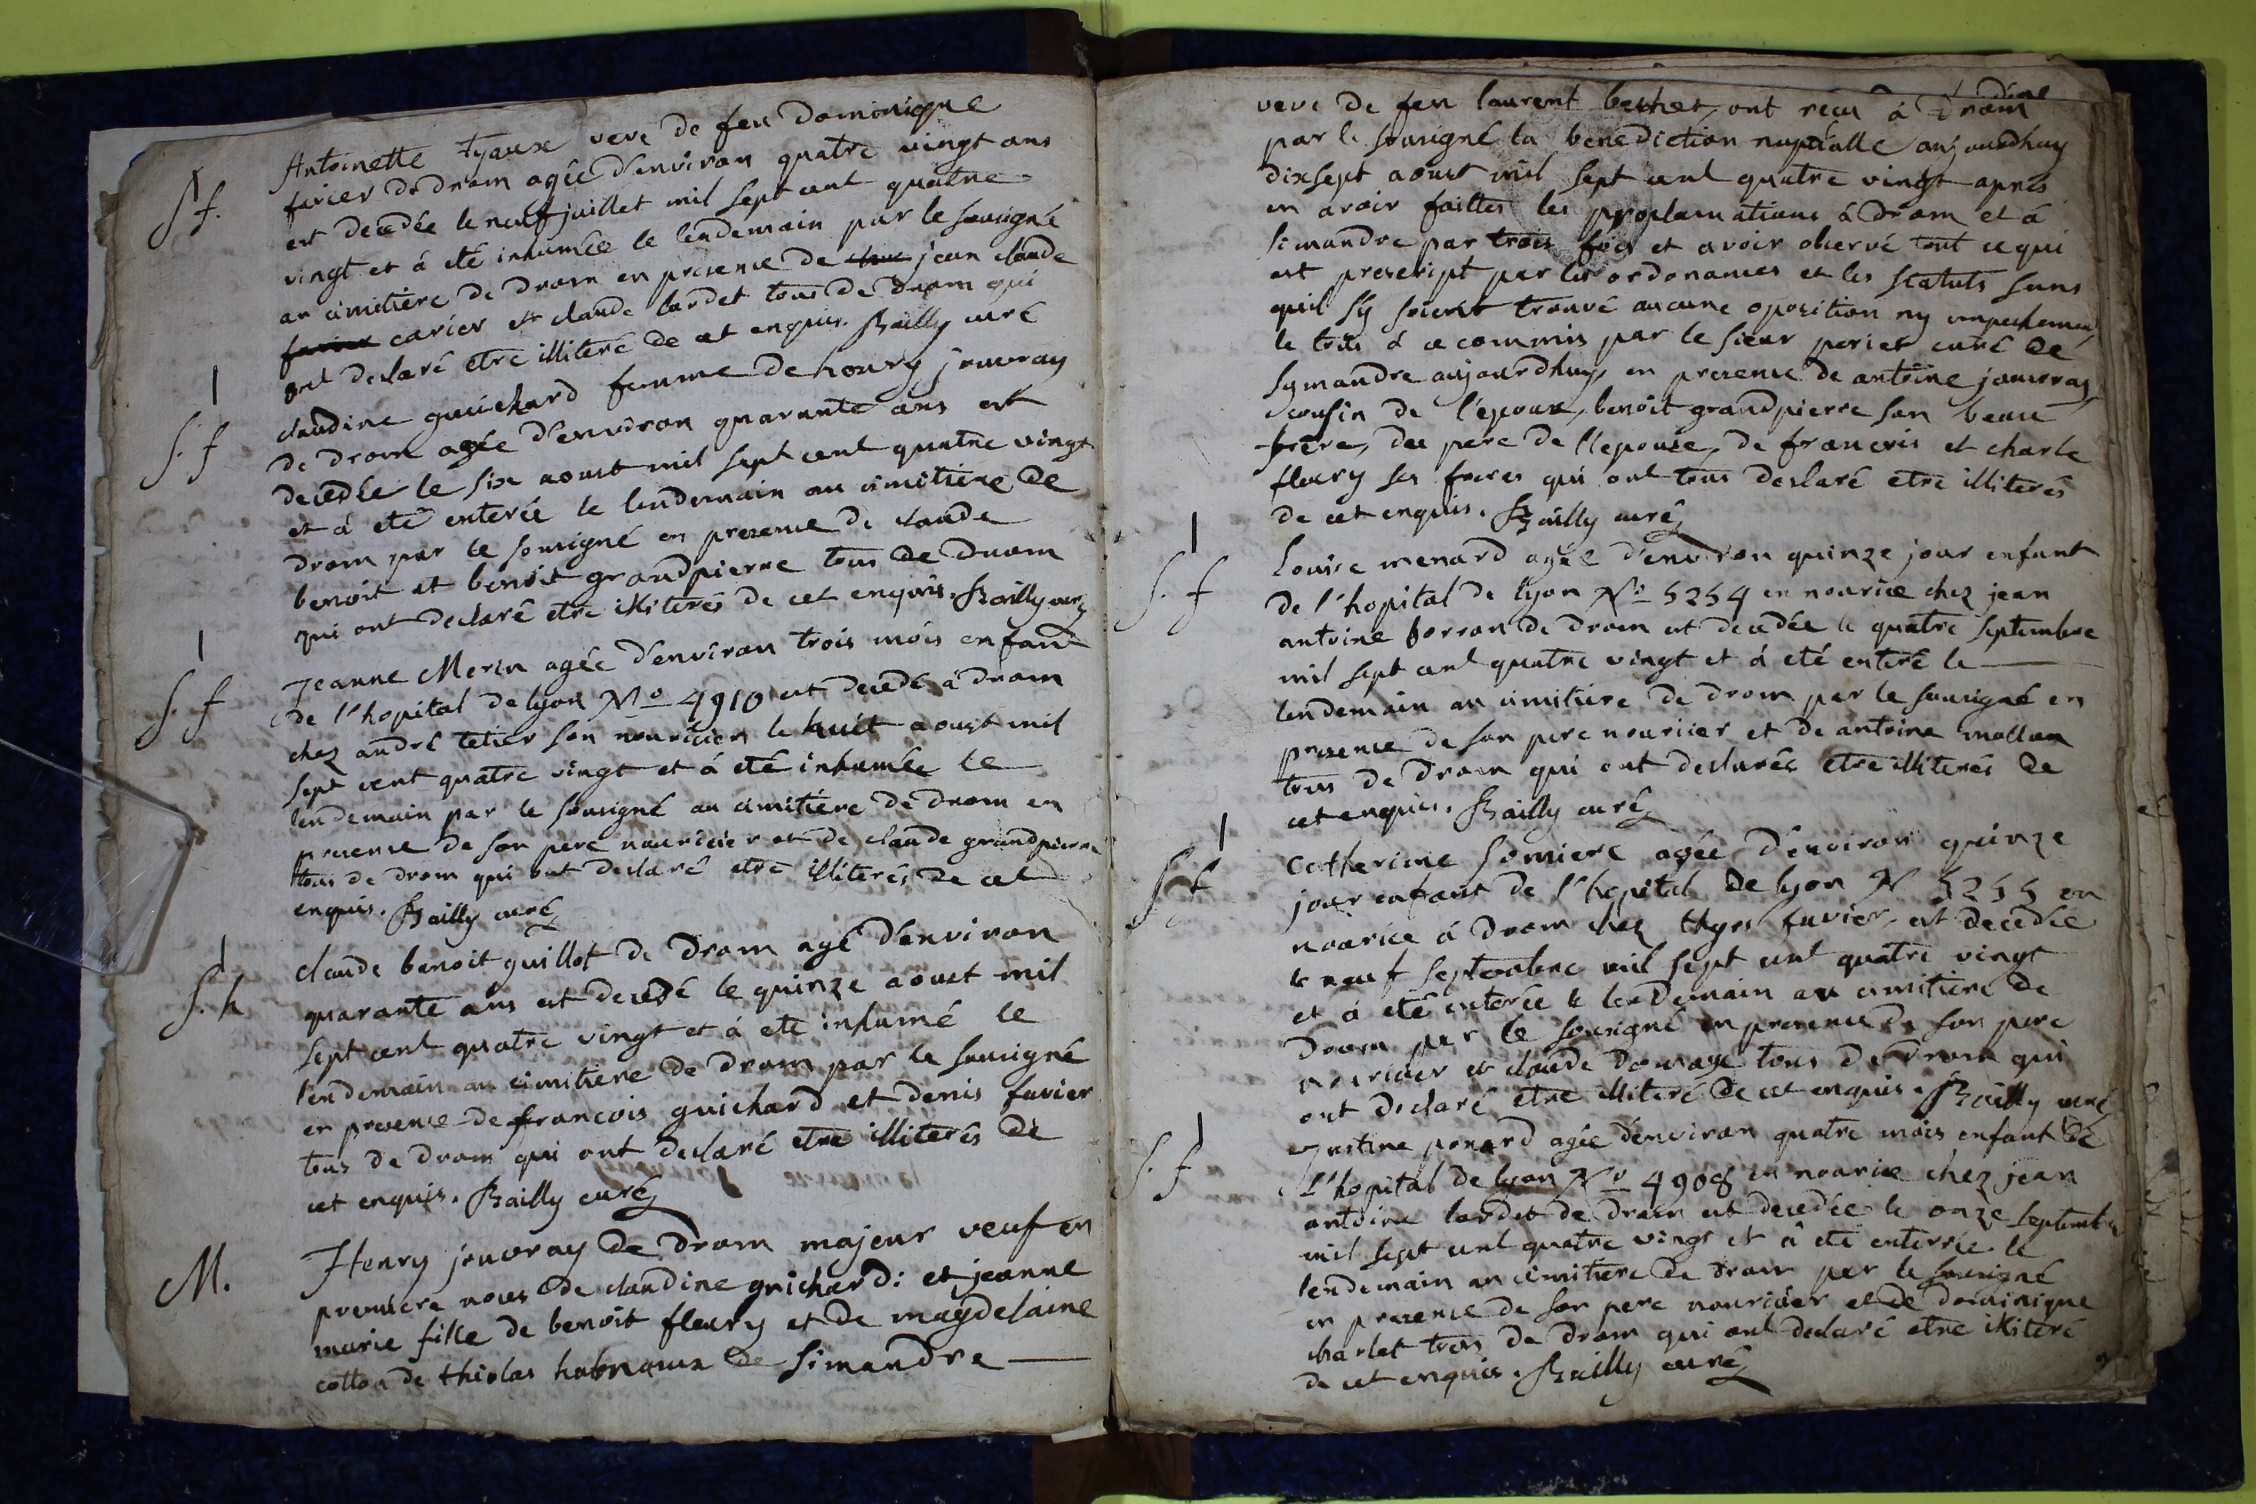 Antoinette tyaux veve de feu dominique
S f. favier de drom agée d'environ quatre vingt ans
est decedée le neuf juillet mil sept cent quatre
vingt et á eté inhumée le lendemain par le sousigné
au cimitiere de drom en presence de jean claude
carier et claude lardet tous de drom qui
ont declaré etre illiteré de cet enquis. Bailly curé
claudine guichard femme de henry jouvray
S. f de drom agée d'environ quarante ans est
decedée le six aoust mil sept cent quatre vingt
et á eté enterée le lendemain au cimitiere de
drom par le sousigné en presence de claude
benoit et benoit grandpierre tous de drom
qui ont declaré etre illiterés de cet enquis. Bailly curé
Jeanne Merin agée d'environ trois mois enfant
S. f de l'hopital de lyon No 4910 est decedé á drom
chez andré tetier son nouricier le huit aoust mil
sept cent quatre vingt et á eté inhumée le
lendemain par le sousigné au cimitiere de drom en
presence de son pere nouricier et de claude grandpierre
tous de drom qui ont declaré etre illiterés de cet
enquis. Bailly curé
claude benoit guillot de drom agé d'environ
S. h quarante ans est decedé le quinze aoust mil
sept cent quatre vingt et á eté inhumé le
lendemain au cimitiere de drom par le sousigné
en presence de francois guichard et denis favier
tous de drom qui ont declaré etre illiterés de
cet enquis. Bailly curé
M. Henry jouvray de drom majeur veuf en
premiere noces de claudine guichard: et jeanne
marie fille de benoit fleury et de magdelaine
cotton de thiolas hameaux de simandre
veve de feu laurent bernet, ont reçu á drom
par le sousigné la benediction nuptialle aujourdhuy
dixsept aoust mil sept cent quatre vingt aprés
en avoir faittes les proclamations á drom et á
simandre par trois fois et avoir observé tout ce qui
est prescript par les ordonances et les statuts sans
quil s'y soient trouvé aucune oposition ny empechement
le tous á ce commis par le sieur perier curé de
symandre aujourdhuy en presence de antoine jouvray
cousin de l'epoux, benoit grandpierre son beau
frere, du pere de l'epouse, de francois et charle
fleury ses freres qui ont tous declaré etre illiterés
de cet enquis. Bailly curé
Louise menard agée d'environ quinze jour enfant
S. f de l'hopital de lyon No 5254 en nourice chez jean
antoine borron de drom est decedée le quatre septembre
mil sept cent quatre vingt et á eté enteré le
lendemain au cimitiere de drom par le sousigné en
presence de son pere nouricier et de antoine mallun
tous de drom qui ont declarés etre illiterés de
cet enquis. Bailly curé
Catherine somiere agée d'environ quinze
S f jour enfant de l'hopital de lyon N 5255 en
nourice á drom chez thyes favier, est decedée
le neuf septembre mil sept cent quatre vingt
et á eté enterée le lendemain au cimitiere de
drom par le sousigné en presence de son pere
nouricier et claude tous de drom qui
ont declaré etre illiteré de cet enquis. Bailly curé
Justine ponard agée d'environ quatre mois enfant de
S. f l'hopital de lyon No 4908 en nourice chez jean
antoine lardet de drom est decedée le onze septembre
mil sept cent quatre vingt et á eté enterrée le
lendemain au cimitiere de drom par le sousigné
en presence de son pere nouricier et de dominique
charlet tous de drom qui ont declaré etre illiteré
de cet enquis. Bailly curé